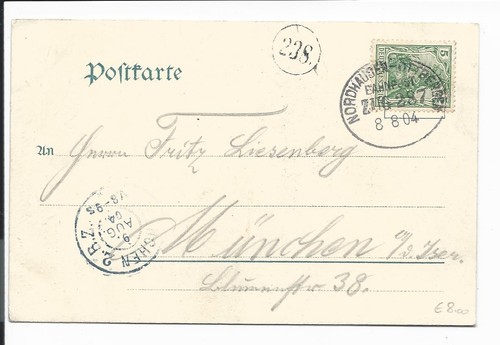 238.
Postkarte
5
NORDHAUSEN
BAHNPOST
ZUG
8 8 04
An Herrn Fritz Liesenberg
München a/d Isar.
Blumenstr 38.
CHEN 2.B.Z.
9
AUG.
04
V8-9S
€ 8.00